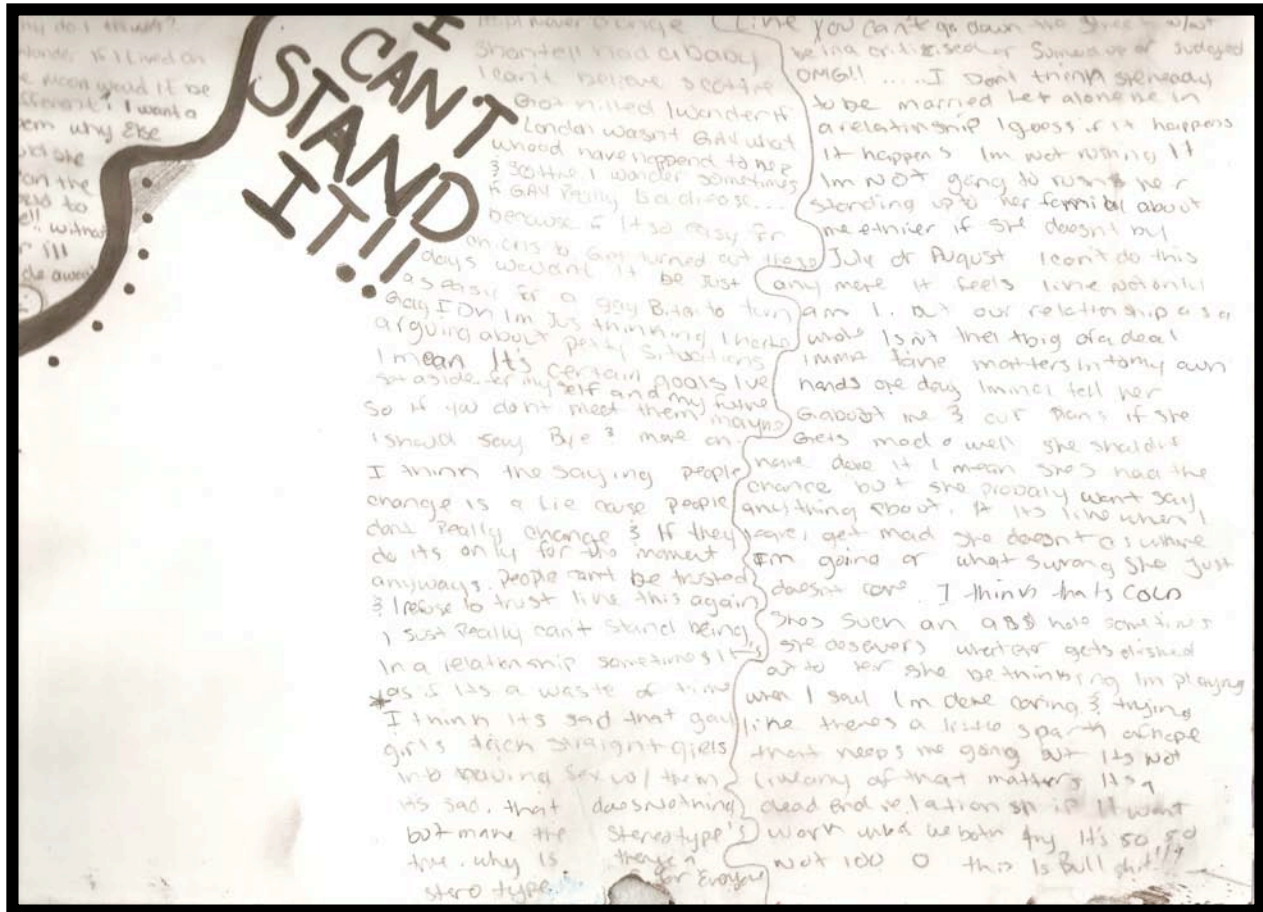 why do I
wonder if I lived on
the moon would it be
different? I want a
them why Else
on the
to
!! without
!!!
I
CAN'T
STAND
IT!!
Never
Shantell had a baby
I can't believe scottie
Got killed I wonder if
London wasnt GAY what
whood have happend to her
& scottie I wonder sometimes
if GAY Really is a disease....
because if its so easy for
to Gay turned out these
days wouldnt it be Just
as easy for a gay to turn
Gay I Dn Im Jus thinking I hate
arguing about petty situations
I mean It's certain goals Ive
set aside for my self and my future
So if you dont meet them maybe
I should say Bye & move on.
I think the saying people
change is a lie cause people
dont Really change & If they
do its only for the moment
anyways. People cant be trusted
& I refuse to trust like this again
I Just Really can't stand being
In a relationship sometimes it's
*as if its a waste of time
I think its sad that gay
girls trick straight girls
into having sex w/ them
its sad. that does nothing
but make the stereotype's
true. why is there a
stero type. for Everyone
You can't go down the Street w/out
being critizised or Sumed up or Judged
OMG!! .....I Don't think she ready
to be married Let alone be in
a relatinship I guess if it happens
It happens Im not rushing It
Im NOT going to rush her
standing up to her about
me ethier if she doesnt by
July or August I cant do this
any more it feels like not only
am I. but our relationship as a
whole Isn't that big of a deal
Imma take matters into my own
hands one day Imma tell her
about me & our plans if she
Gets mad o well she should
have done it I mean shes had the
chance but she probaly want say
anything about. it its like when I
leave, get mad she doesnt as where
I'm going or what s wrong she Just
doesnt care. I think thats COLD
Shes such an a$$ hole sometimes
she deservers whatever gets dished
out to her she be thinking Im playing
when I said Im done caring & trying
like theres a little spark of hope
that keeps me going but its not
like any of that matters its a
dead end relationship it want
work unless we both try It's 50 50
Not 100 0 this Is Bull shit!!!